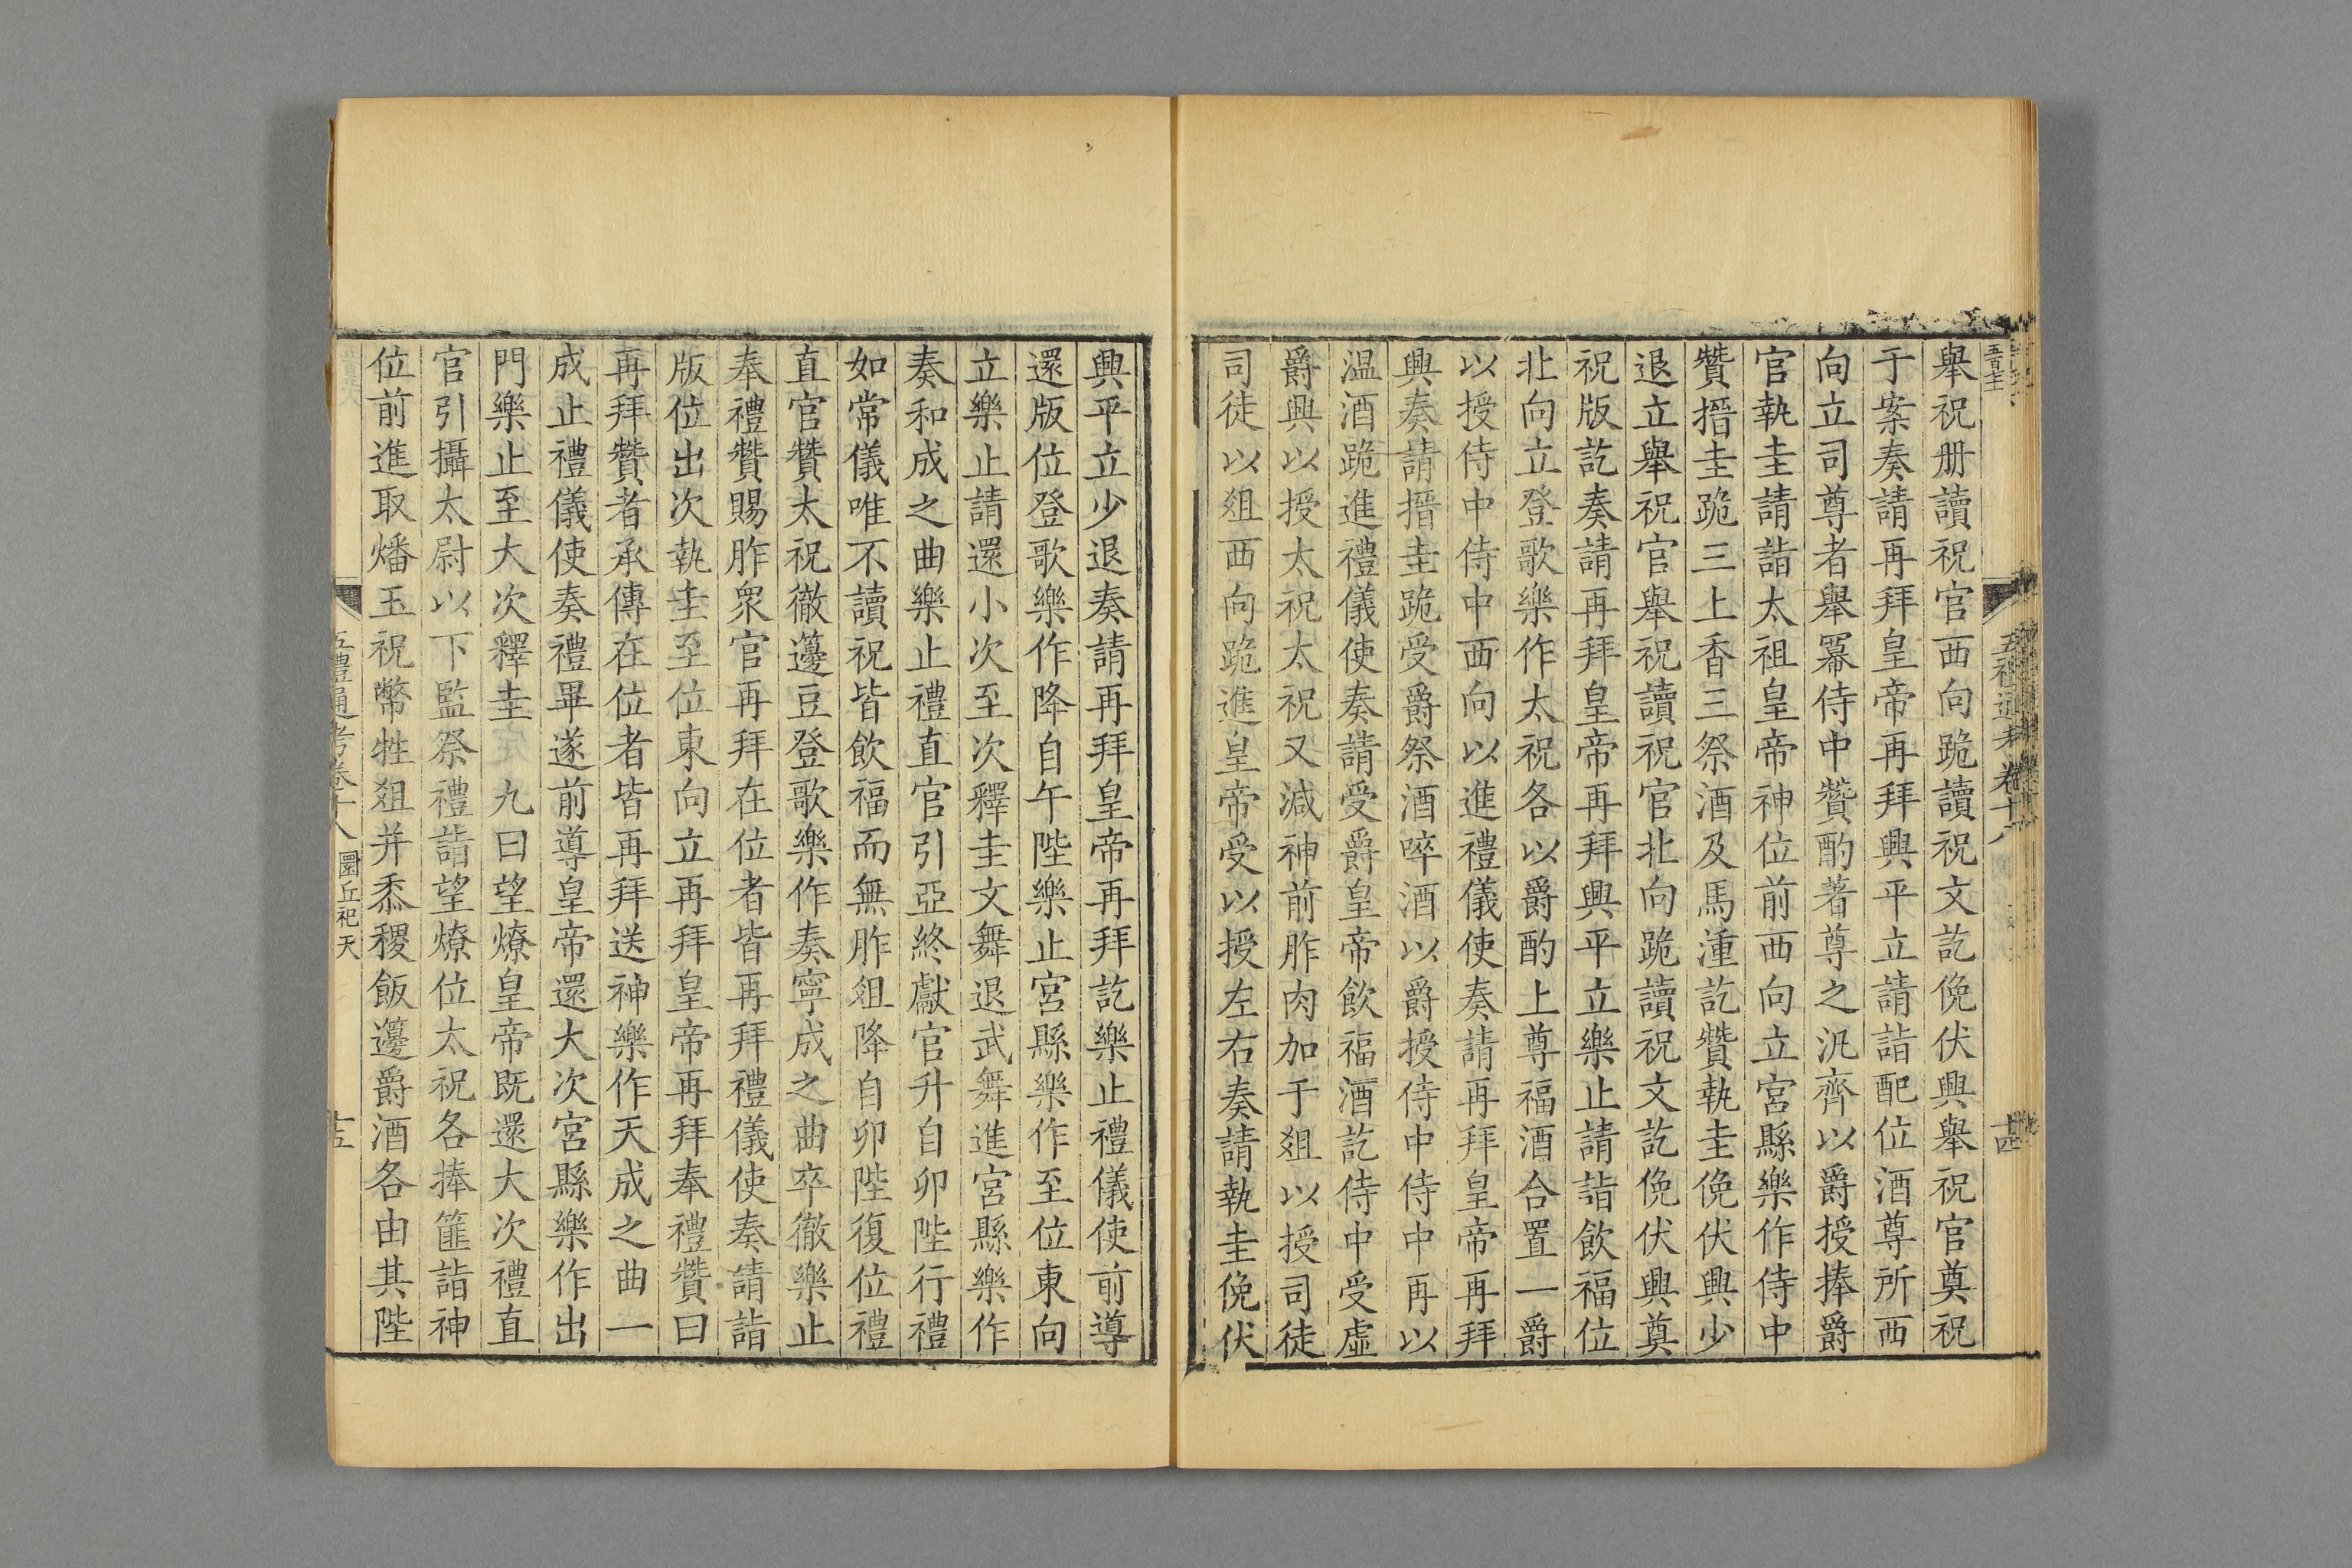 五禮通考卷十八
十四
舉祝册讀祝官西向跪讀祝文訖俛伏興舉祝官奠祝
于案奏請再拜皇帝再拜興平立請詣配位酒尊所西
向立司尊者舉冪侍中贊酌著尊之汎齊以爵授捧爵
官執圭請詣太祖皇帝神位前西向立宮縣樂作侍中
贊搢圭跪三上香三祭酒及馬湩訖贊執圭俛伏興少
退立舉祝官舉祝讀祝官北向跪讀祝文訖俛伏興奠
祝版訖奏請再拜皇帝再拜興平立樂止請詣飲福位
北向立登歌樂作太祝各以爵酌上尊福酒合置一爵
以授侍中侍中西向以進禮儀使奏請再拜皇帝再拜
興奏請搢圭跪受爵祭酒啐酒以爵授侍中侍中再以
温酒跪進禮儀使奏請受爵皇帝飲福酒訖侍中受虛
爵興以授太祝太祝又減神前胙肉加于爼以授司徒
司徒以爼西向跪進皇帝受以授左右奏請執圭俛伏
興平立少退奏請再拜皇帝再拜訖樂止禮儀使前導
還版位登歌樂作降自午陛樂止宮縣樂作至位東向
立樂止請還小次至次釋圭文舞退武舞進宮縣樂作
奏和成之曲樂止禮直官引亞終獻官升自卯陛行禮
如常儀唯不讀祝皆飲福而無胙俎降自卯陛復位禮
直官贊太祝徹籩豆登歌樂作奏寧成之曲卒徹樂止
奉禮贊賜胙衆官再拜在位者皆再拜禮儀使奏請詣
版位出次執圭至位東向立再拜皇帝再拜奉禮贊曰
再拜贊者承傳在位者皆再拜送神樂作天成之曲一
成止禮儀使奏禮畢遂前導皇帝還大次宮縣樂作出
門樂止至大次釋圭 九曰望燎皇帝既還大次禮直
官引攝太尉以下監祭禮詣望燎位太祝各捧篚詣神
位前進取燔玉祝幣牲爼并黍稷飯籩爵酒各由其陛
五禮通考卷十八 圜丘祀天
十五